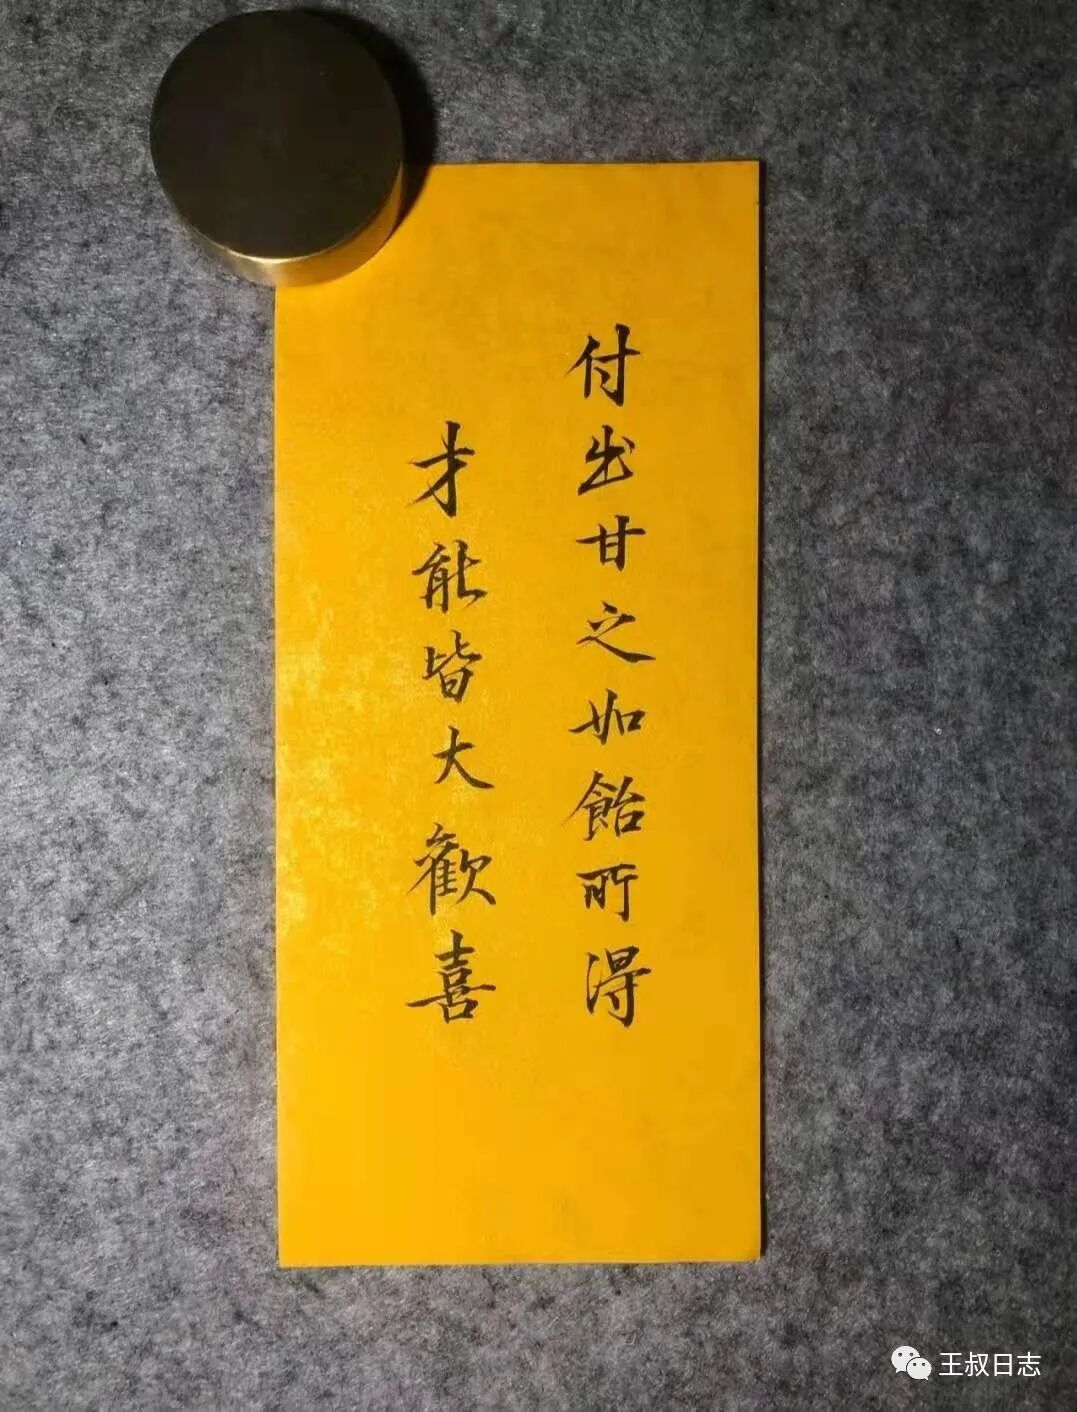 付出甘之如飴所淂
才能皆大歡喜
王叔日志